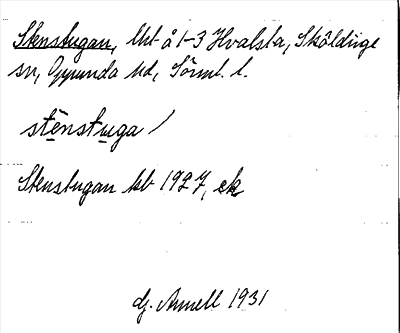 Stenstugan, lht å 1-3 Hvalsta, Sköldinge
sn, Oppunda hd, Sörml. l.
stēnstuga /
Stenstugan kb 1927, ek
Dj. Annell 1931